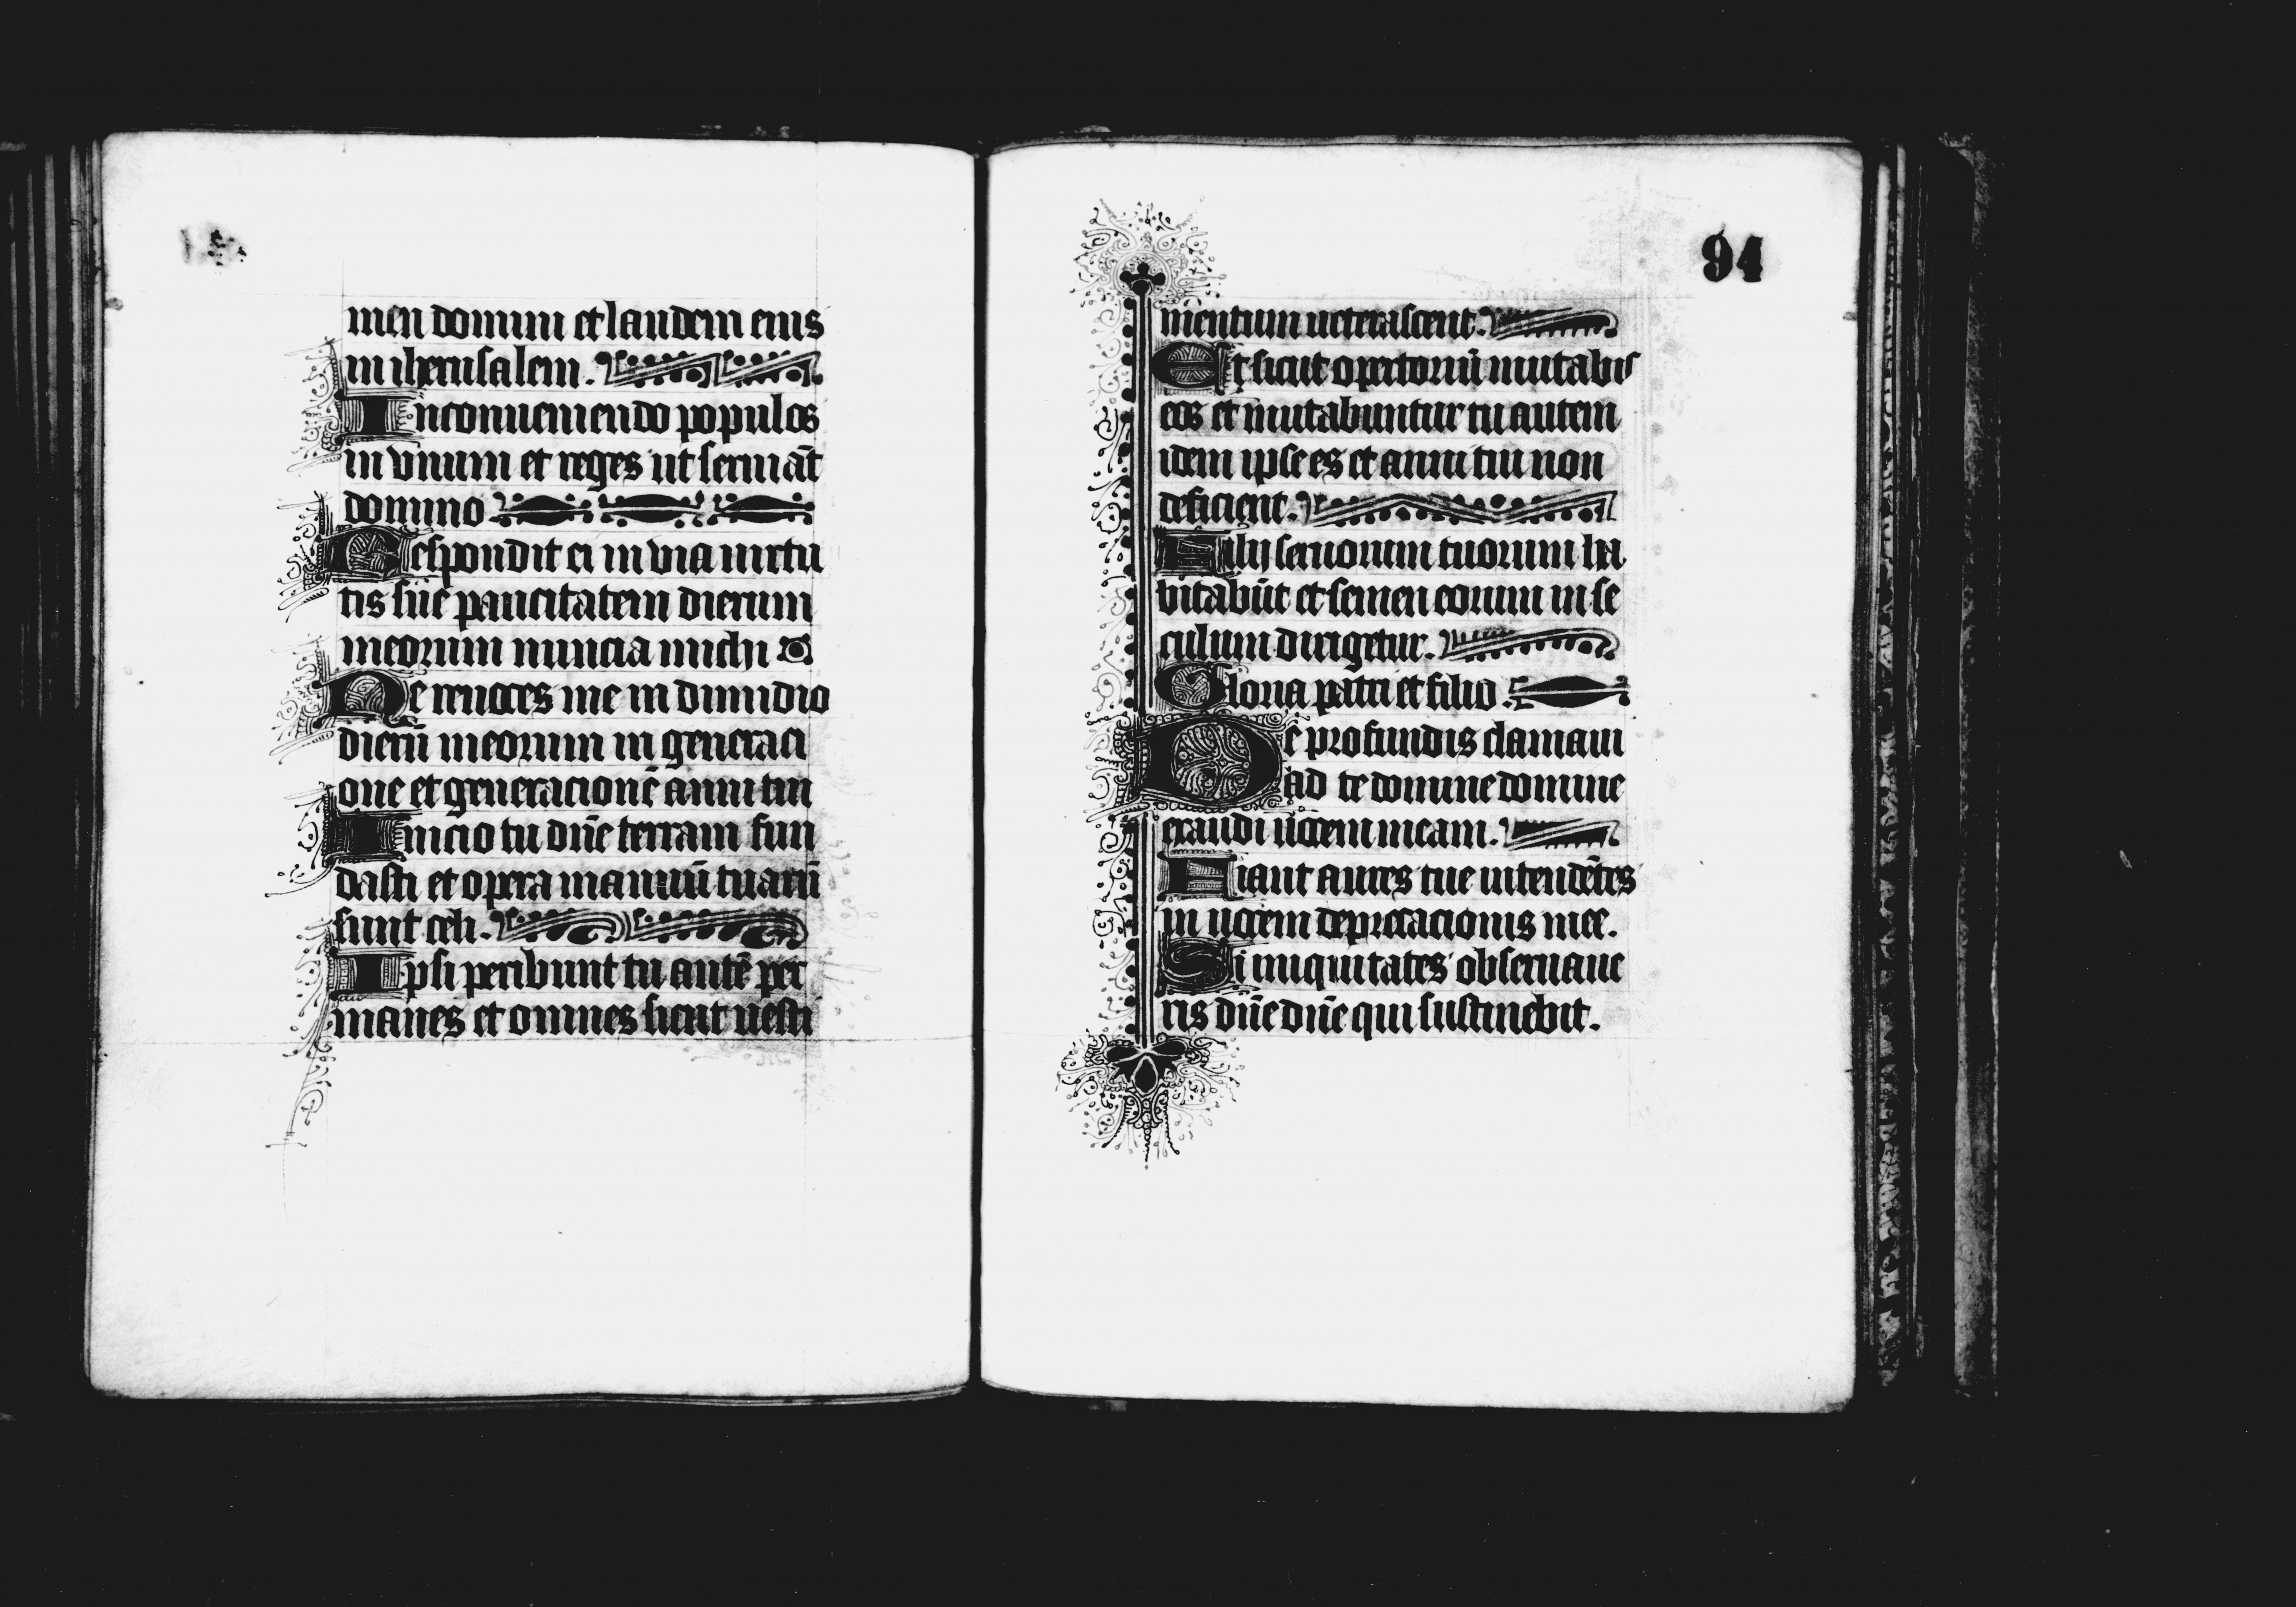 men domini et laudem eius
in iherusalem.
In conueniendo populos
in vnum et reges ut seruiāt
domino
Respondit ei in via uirtu
tis sue paucitatem dierum
meorum nuncia michi
Ne reuoces me in dimidio
dierū meorum in generaci
one et generacionē anni tui
Inicio tu dn̄e terram fun
dasti et opera manuū tuarū
sunt celi.
Ipsi peribunt tu autē per
manes et omnes sicut uesti
94
mentum ueterascent.
Et sicut opertoriū mutabis
eos et mutabuntur tu autem
idem ipse es et anni tui non
deficient.
Filij seruorum tuorum ha
bitabūt et semen eorum in se
culum dirigetur.
Gloria patri et filio.
De profundis clamaui
ad te domine domine
exaudi uocem meam.
Fiant aures tue intendētes
in uocem deprecacionis mee.
Si iniquitates obseruaue
ris dn̄e dn̄e qui sustinebit.